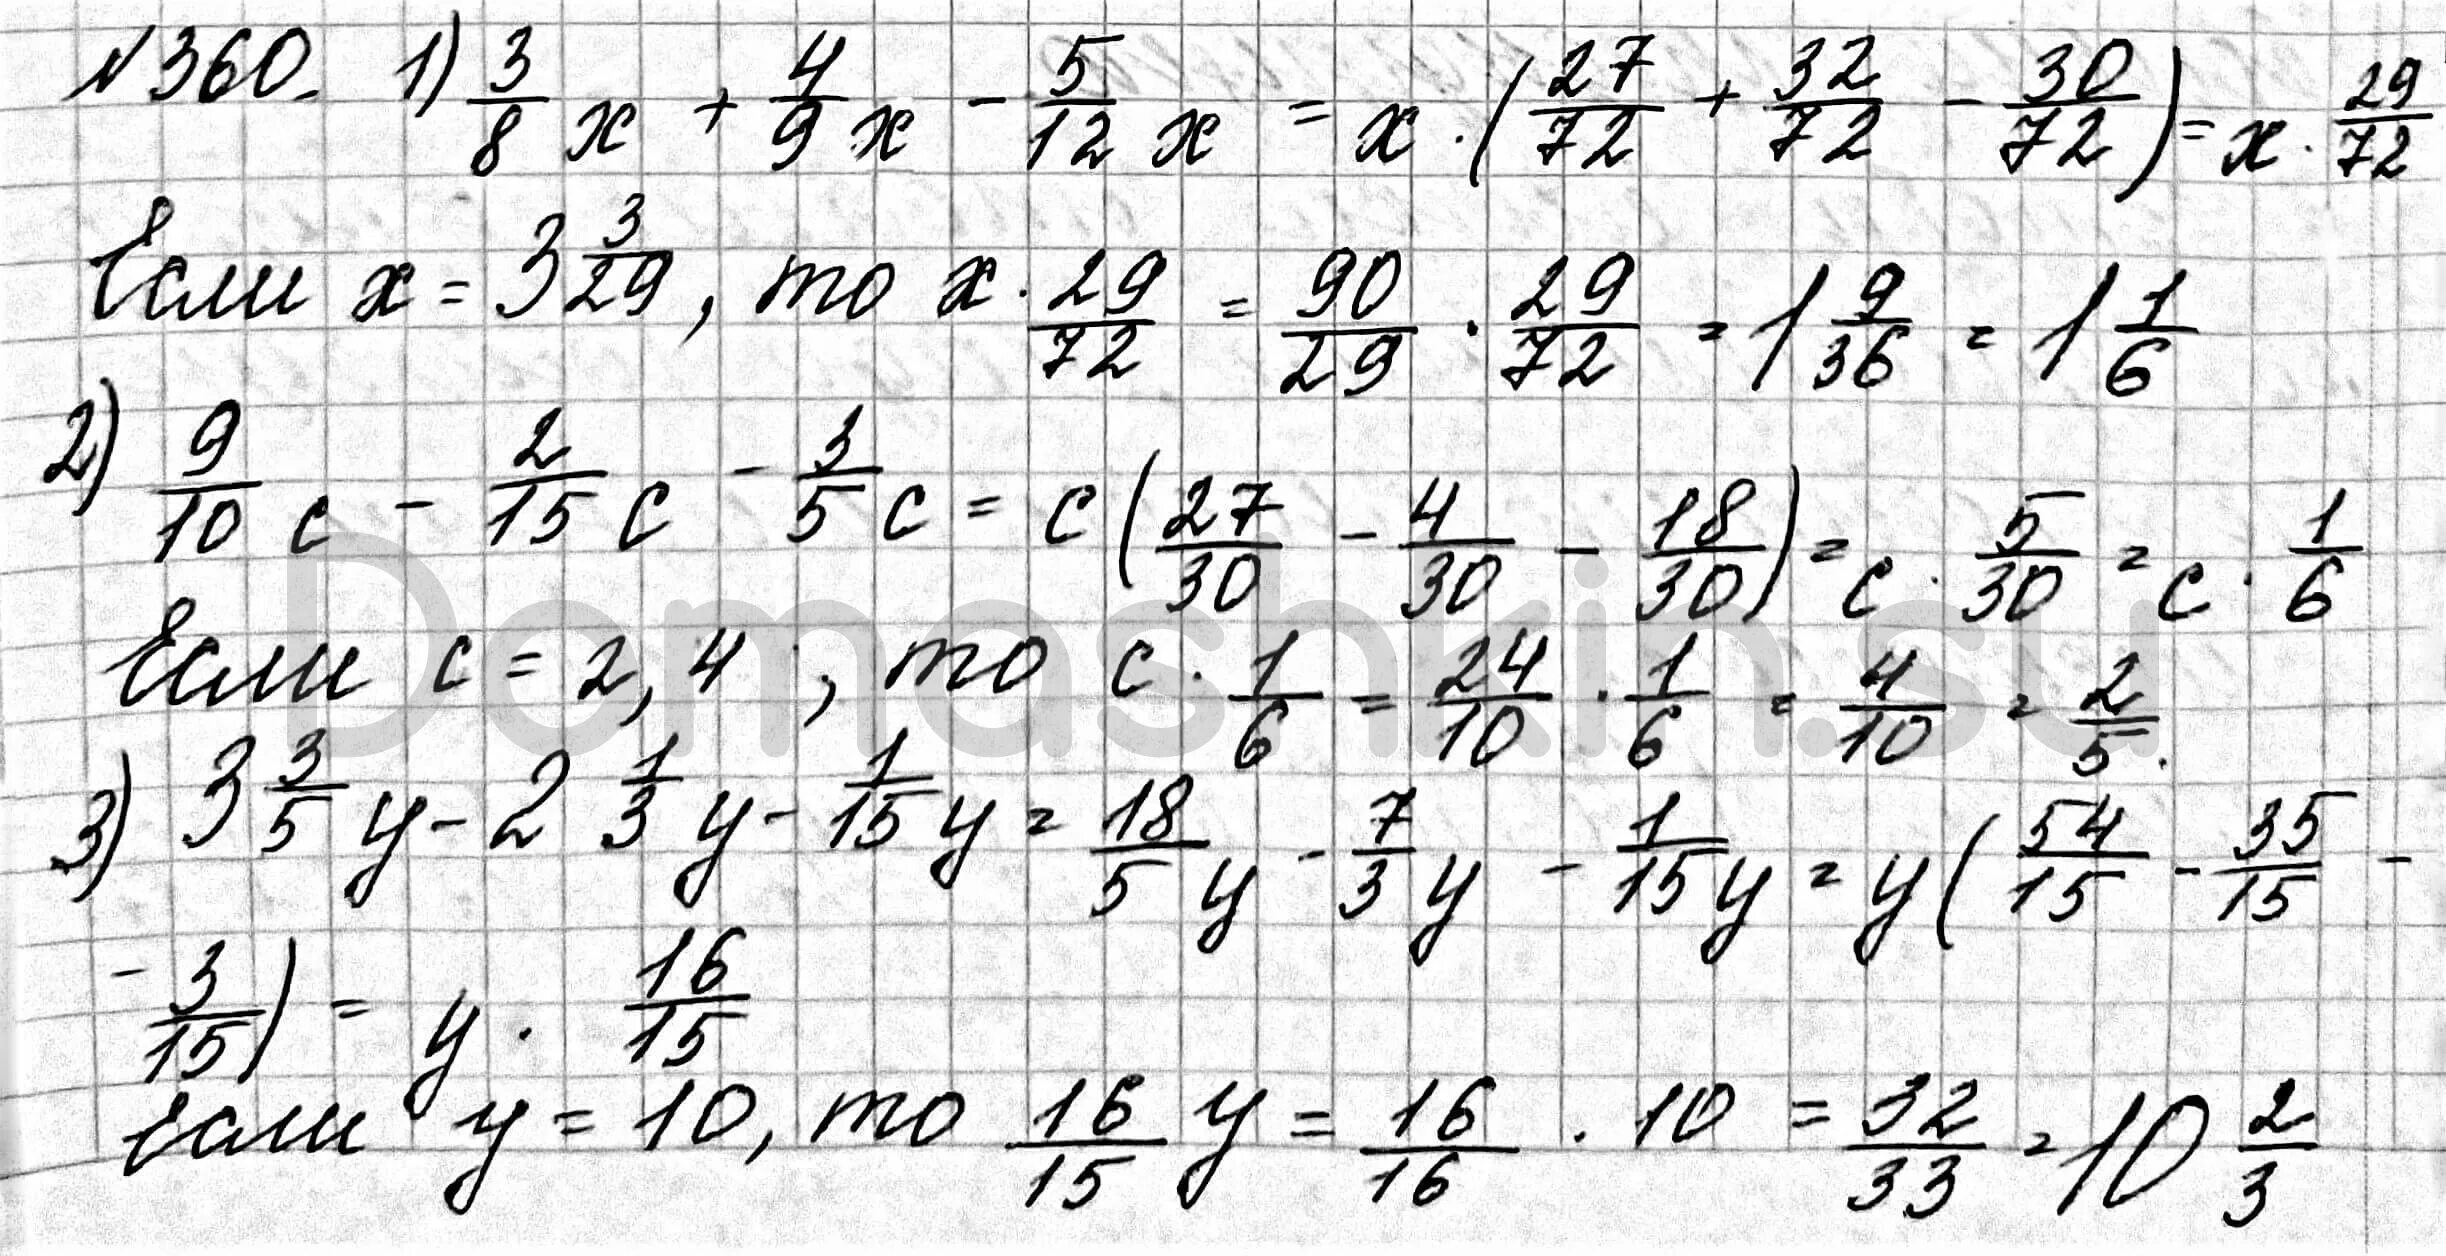 №360. 1) 3/8 x + 4/9 x - 5/12 x = x · (27/72 + 32/72 - 30/72) = x · 29/72
Если x = 3 3/29, то x · 29/72 = 90/29 · 29/72 = 1 9/36 = 1 1/6
2) 9/10 c - 2/15 c - 3/5 c = c (27/30 - 4/30 - 18/30) = c · 5/30 = c · 1/6
Если c = 2,4, то c · 1/6 = 24/10 · 1/6 = 4/10 = 2/5.
Domashkin.su
3) 3 3/5 y - 2 1/3 y - 1/15 y = 18/5 y - 7/3 y - 1/15 y = y (54/15 - 35/15 -
- 3/15) = y · 16/15
Если y = 10, то 16/15 y = 16/16 · 10 = 32/33 = 10 2/3